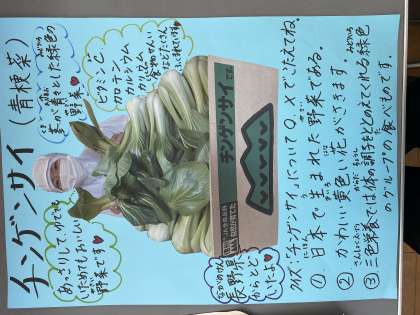 チンゲンサイ(青梗菜)
葉が青々とした緑色の
野菜♥
ビタミンC
カロテン
カルシウム
カリウム
食物せんい
などたくさん
ふくまれています♥
あっさりして、ゆでても
いためてもおいしい
野菜です♥
チンゲンサイ
です。
ながのけん
長野県
からとど
いたよ♥
クイズ:『チンゲンサイ』について〇、×でこたえてね。
① 日本で生まれた野菜である。
② かわいい黄色い花がさきます。
③ 三色栄養では体の調子をととのえてくれる緑色
のグループの食べものです。